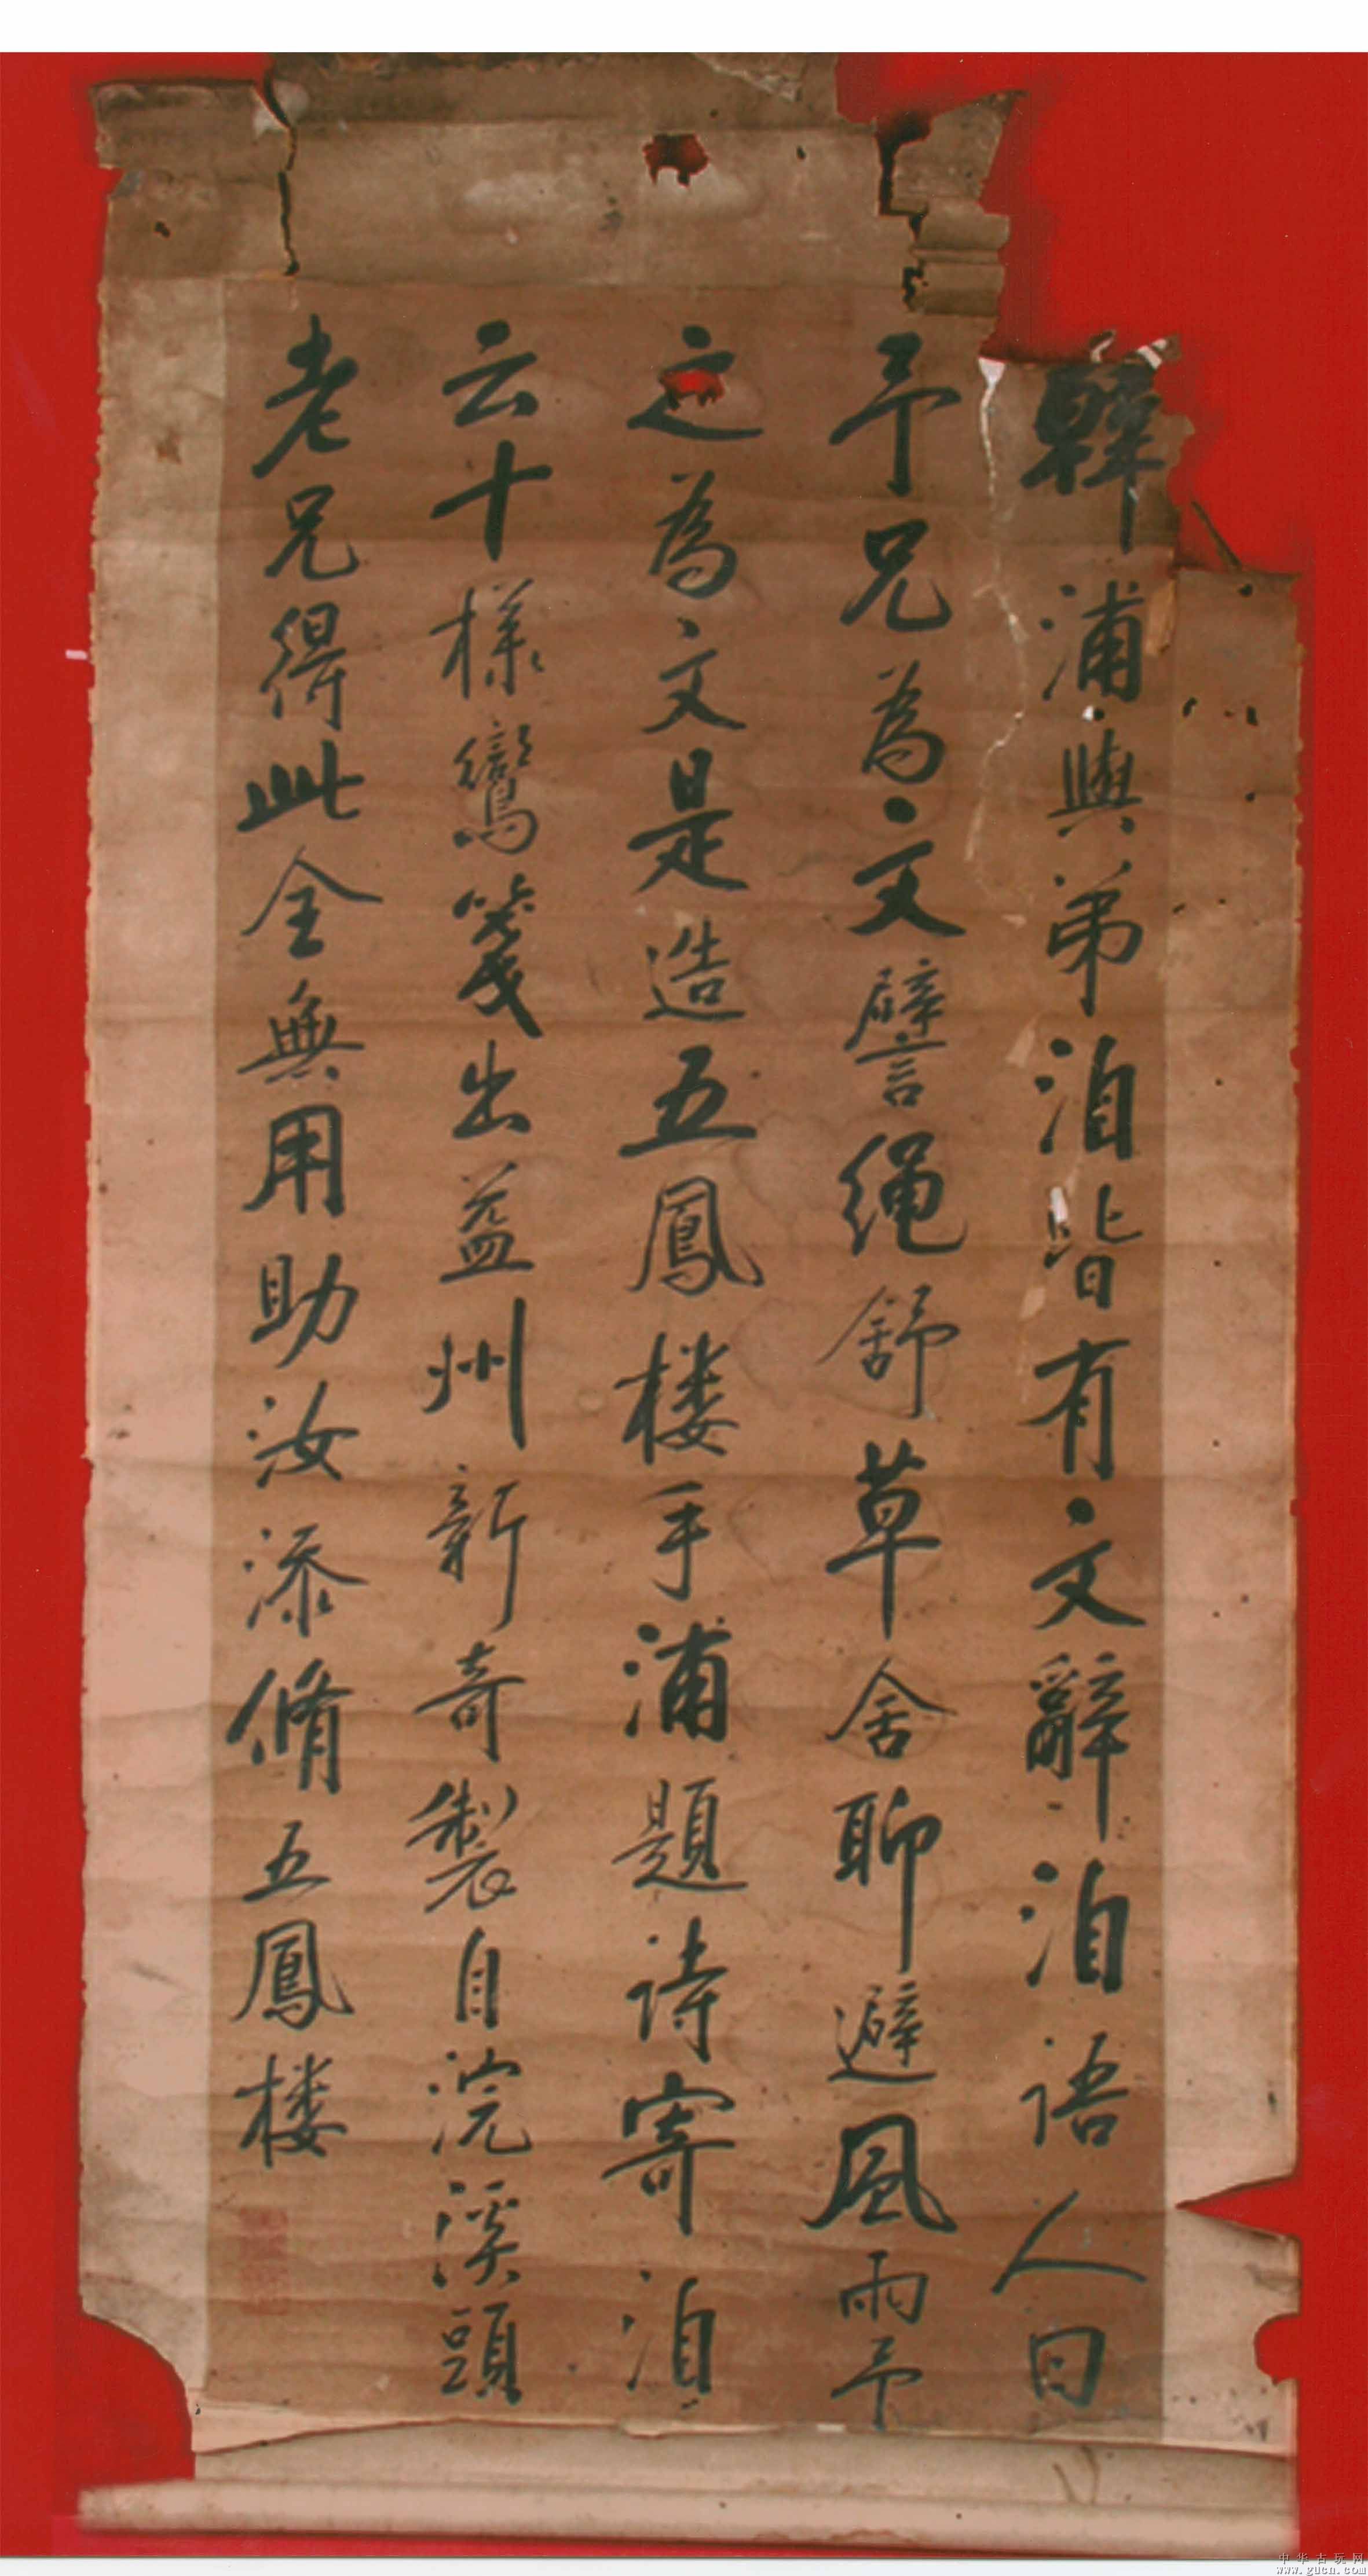 韓浦與弟洎皆有文辭洎語人曰
予兄為文譬繩舒草舍聊避風雨予
之為文是造五鳳楼手浦題詩寄洎
云十樣鸞箋出益州新奇製自浣溪頭
老兄得此全無用助汝添脩五鳳楼
中华古玩网
www.gucn.com